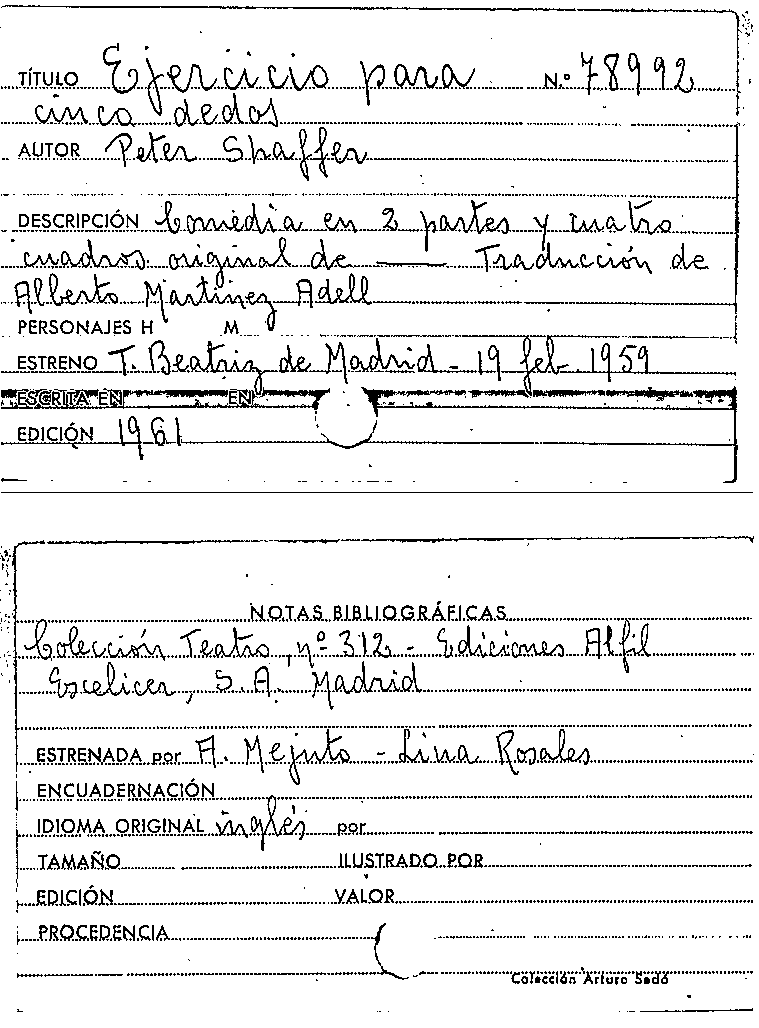 TÍTULO Ejercicio para N.º 78992
cinco dedos
AUTOR Peter Shaffer
DESCRIPCIÓN Comedia en 2 partes y cuatro
cuadros original de —— Traducción de
Alberto Martínez Adell
PERSONAJES H M
ESTRENO T. Beatriz de Madrid - 19 feb. 1959
ESCRITA EN EN
EDICIÓN 1961
NOTAS BIBLIOGRÁFICAS
Colección Teatro, nº 312 - Ediciones Alfil
Escelicer, S.A. Madrid
ESTRENADA por A. Mejuto - Lina Rosales
ENCUADERNACIÓN
IDIOMA ORIGINAL inglés por
TAMAÑO ILUSTRADO POR
EDICIÓN VALOR
PROCEDENCIA
Colección Arturo Sedó